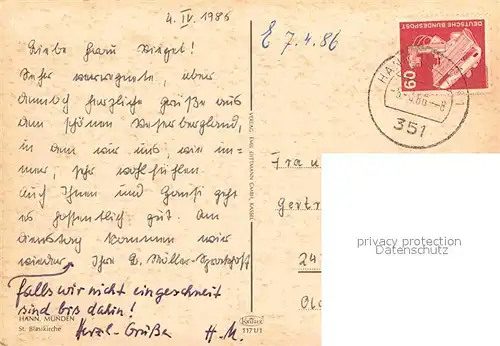 4. IV. 1986
E 7.4.86
Liebe Frau Weigel!
Sehr verregnete, aber
dennoch herzliche Grüße aus
dem schönen Weserbergland,
in dem wir uns, wie im-
mer, sehr wohlfühlen.
Auch Ihnen und Hansi geht
es hoffentlich gut. Am
Dienstag kommen wir
wieder Ihre D. Müller-
falls wir nicht eingeschneit
sind bis dahin!
Herzl. Grüße H. M.
HANN. MÜNDEN
St. Blasikirche
VERLAG EMIL KASSEL
Krüger
1171/1
DEUTSCHE BUNDESPOST
60
HANN
351
Frau
Gertr
24
privacy protection
watermark